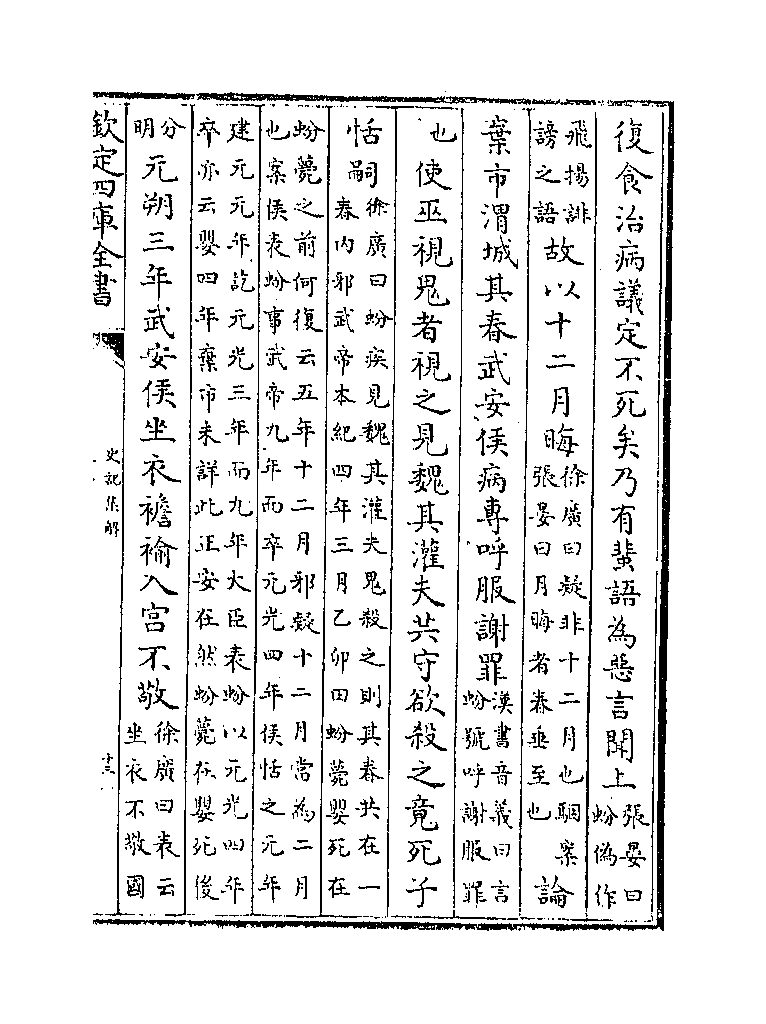 復食治病議定不死矣乃有蜚語為惡言聞上張晏曰蚡偽作
飛揚誹謗之語故以十二月晦徐廣曰疑非十二月也駰案張晏曰月晦者春垂至也論
棄市渭城其春武安侯病専呼服謝罪漢書音義曰言蚡號呼謝服罪
也使巫視鬼者視之見魏其灌夫共守欲殺之竟死子
恬嗣徐廣曰蚡疾見魏其灌夫鬼殺之則其春共在一春内邪武帝本紀四年三月乙卯田蚡薨嬰死在
蚡薨之前何復云五年十二月邪疑十二月當為二月也案侯表蚡事武帝九年而卒元光四年侯恬之元年
建元元年訖元光三年而九年大臣表蚡以元光四年卒亦云嬰四年棄市未詳此正安在然蚡薨在嬰死後
分明元朔三年武安侯坐衣襜褕入宫不敬徐廣曰表云坐衣不敬國
欽定四庫全書
史記集解
十三